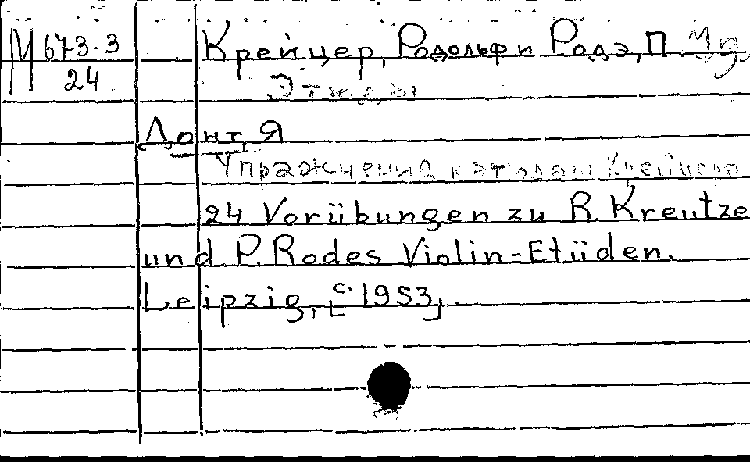 М 673-3
24
Крейцер, Родольф и Родэ, П.
Этюды
Донт, Я
Упражнения к этюдам Крейцера
24 Vorübungen zu R. Kreutze
und P. Rodes Violin-Etüden.
Leipzig, [c. 1953].